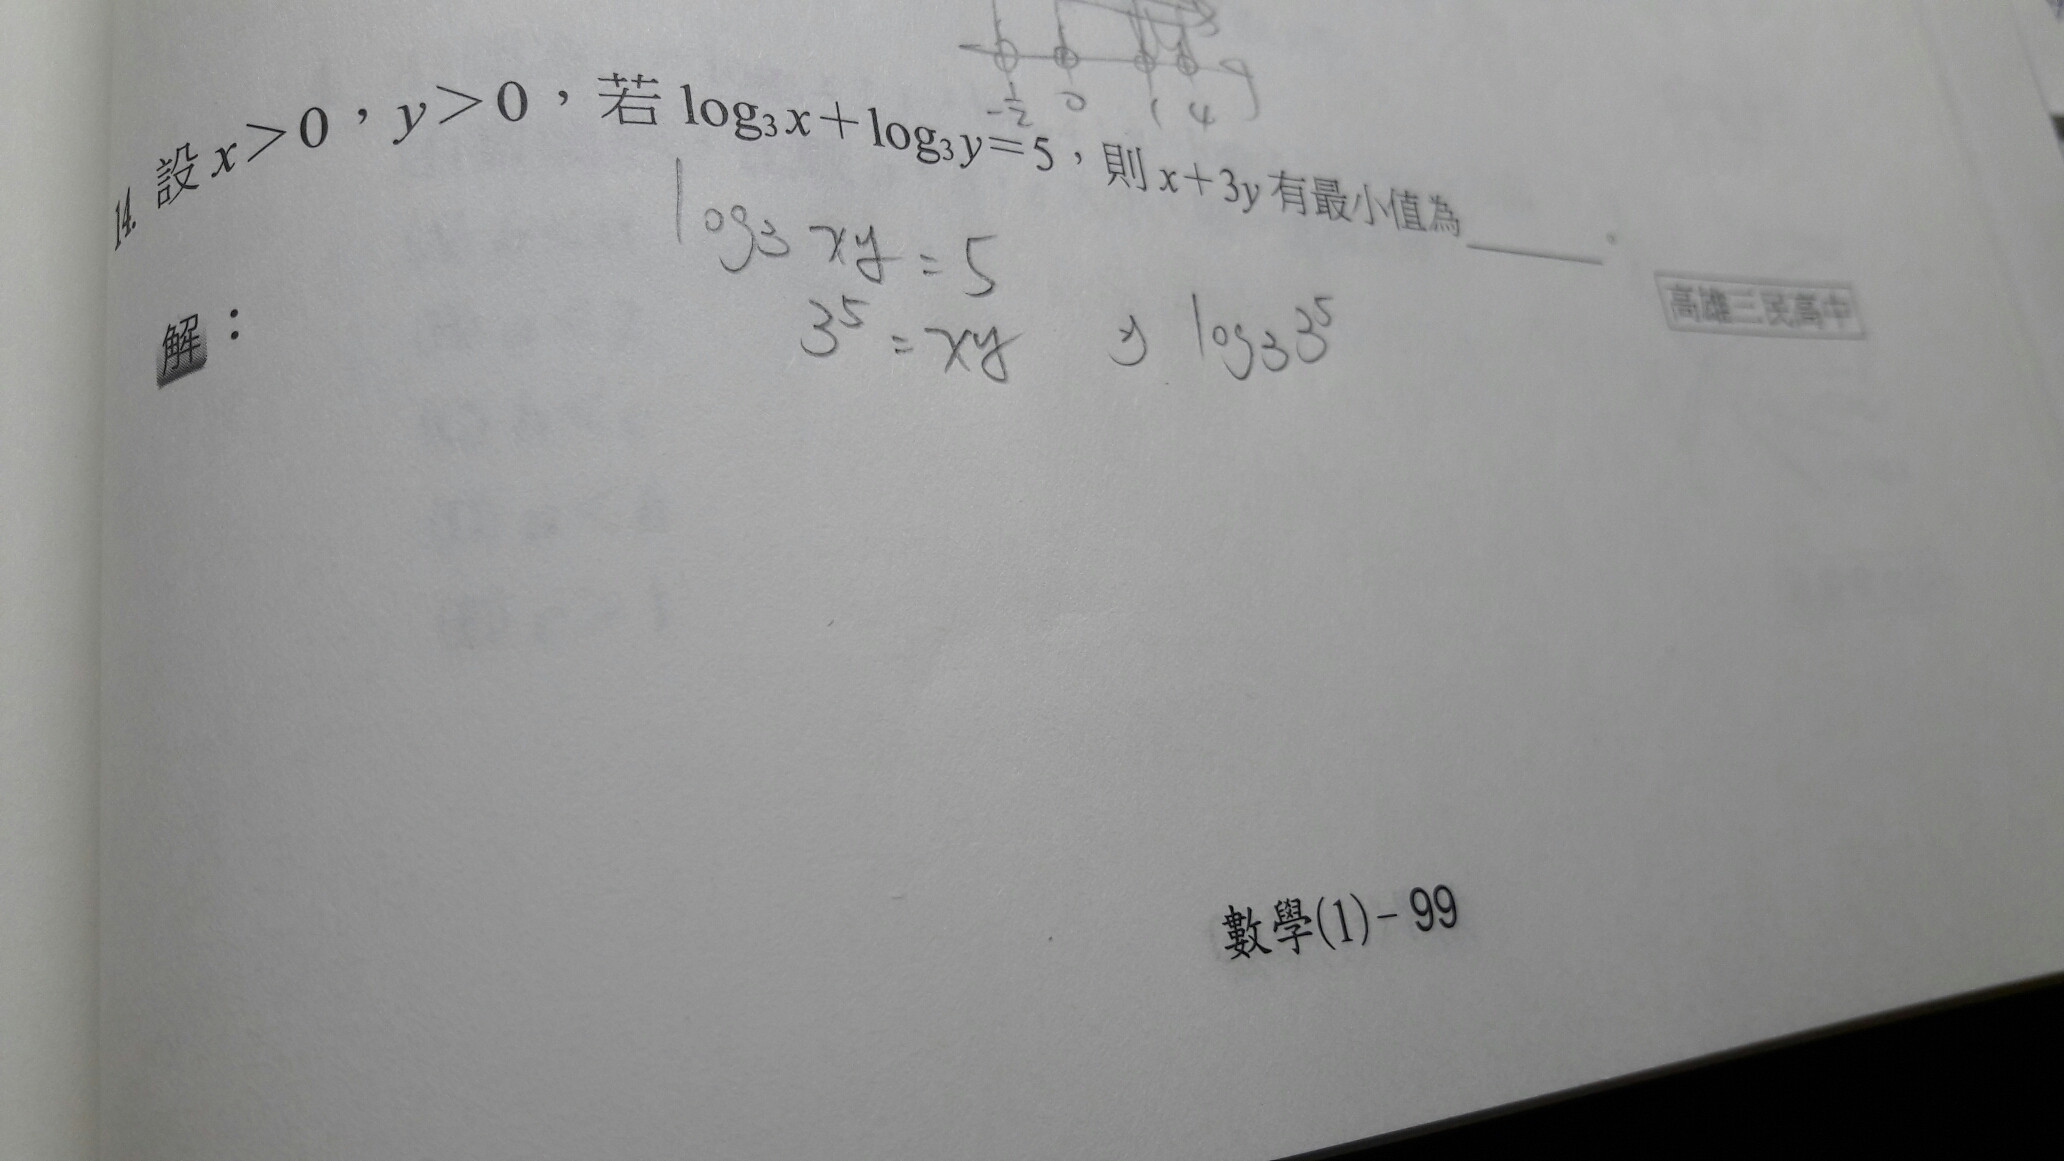 -1/2 0 1 4
14. 設 x＞0，y＞0，若 log₃x＋log₃y＝5，則 x＋3y 有最小值為＿＿＿＿。
高雄三民高中
log₃ xy = 5
解：
3⁵ = xy log₃ 3⁵
數學(1)－99